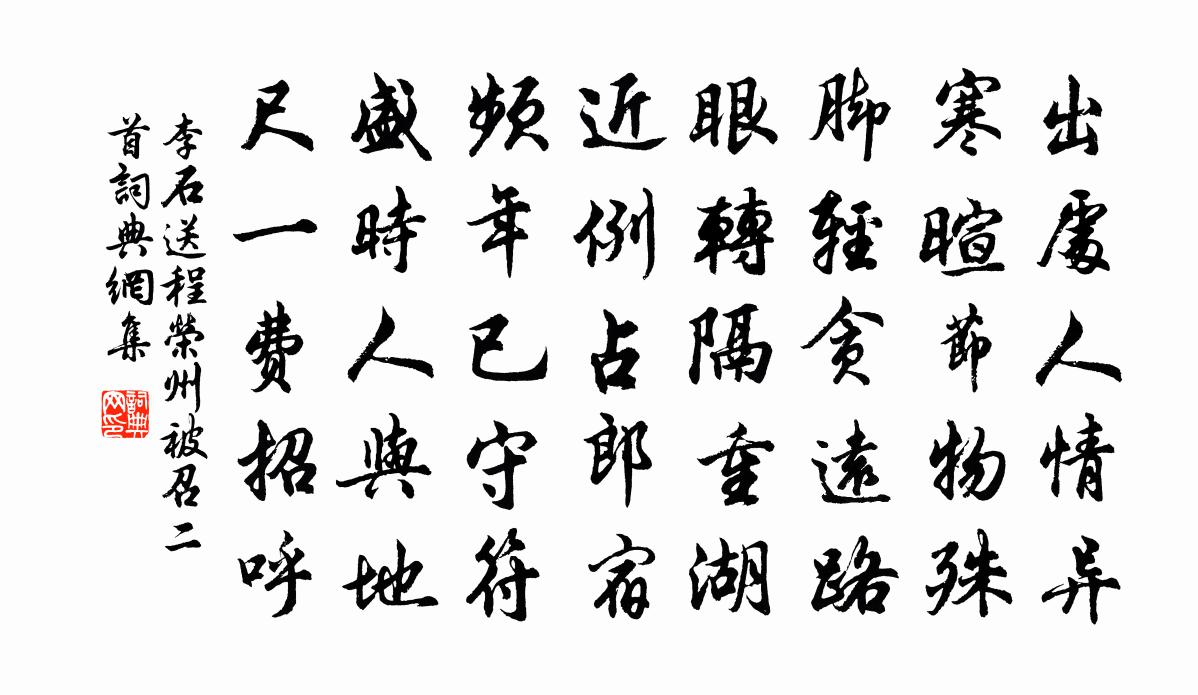 出處人情异
寒暄節物殊
脚輕貪遠路
眼轉隔重湖
近例占郎宿
頻年已守符
盛時人與地
尺一費招呼
李石送程榮州被召二
首詞典網集
詞典網印